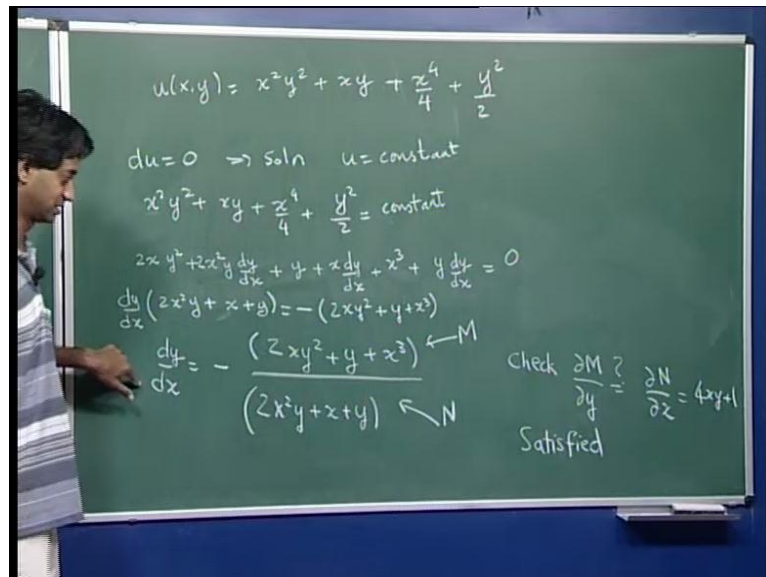 u(x,y) = x²y² + xy + x⁴/4 + y²/2
du=0 ⇒ soln u= constant
x²y² + xy + x⁴/4 + y²/2 = constant
2xy² + 2x²y dy/dx + y + x dy/dx + x³ + y dy/dx = 0
dy/dx (2x²y + x + y) = - (2xy² + y + x³)
dy/dx = - (2xy² + y + x³) / (2x²y + x + y)
← M
↖ N
Check ∂M/∂y ?= ∂N/∂x = 4xy+1
Satisfied